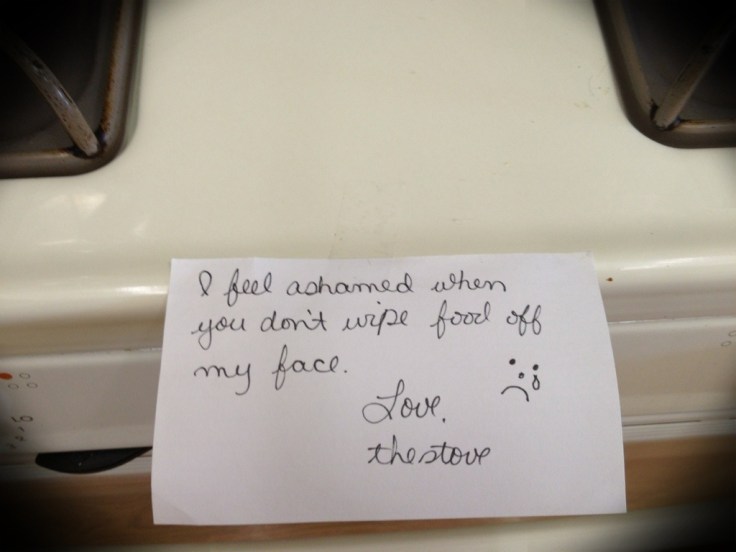 I feel ashamed when
you don't wipe food off
my face.
Love,
the stove